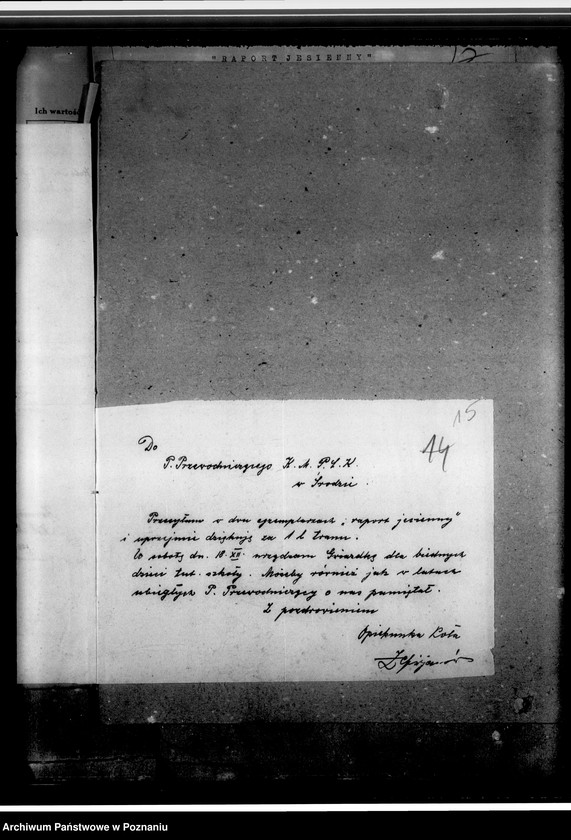 "RAPORT JESIENNY"
Ich wartość
15
14
Do
P. Przewodniczącego K. M. P. C. K.
w Środzie.
Przesyłam w dwu egzemplarzach „raport jesienny”
i uprzejmie dziękuję za 1 l. tranu.
W sobotę dn. 18. XII. urządzam Gwiazdkę dla biednych
dzieci tut. szkoły. Możeby również jak w latach
ubiegłych P. Przewodniczący o nas pamiętał.
Z pozdrowieniem
Opiekunka Koła
Archiwum Państwowe w Poznaniu